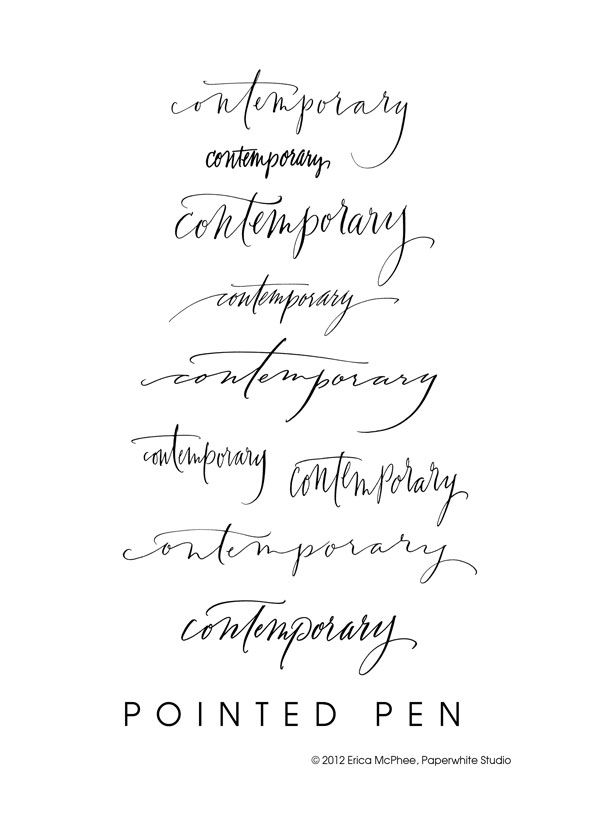 contemporary
contemporary
contemporary
contemporary
contemporary
contemporary contemporary
contemporary
contemporary
POINTED PEN
© 2012 Erica McPhee, Paperwhite Studio